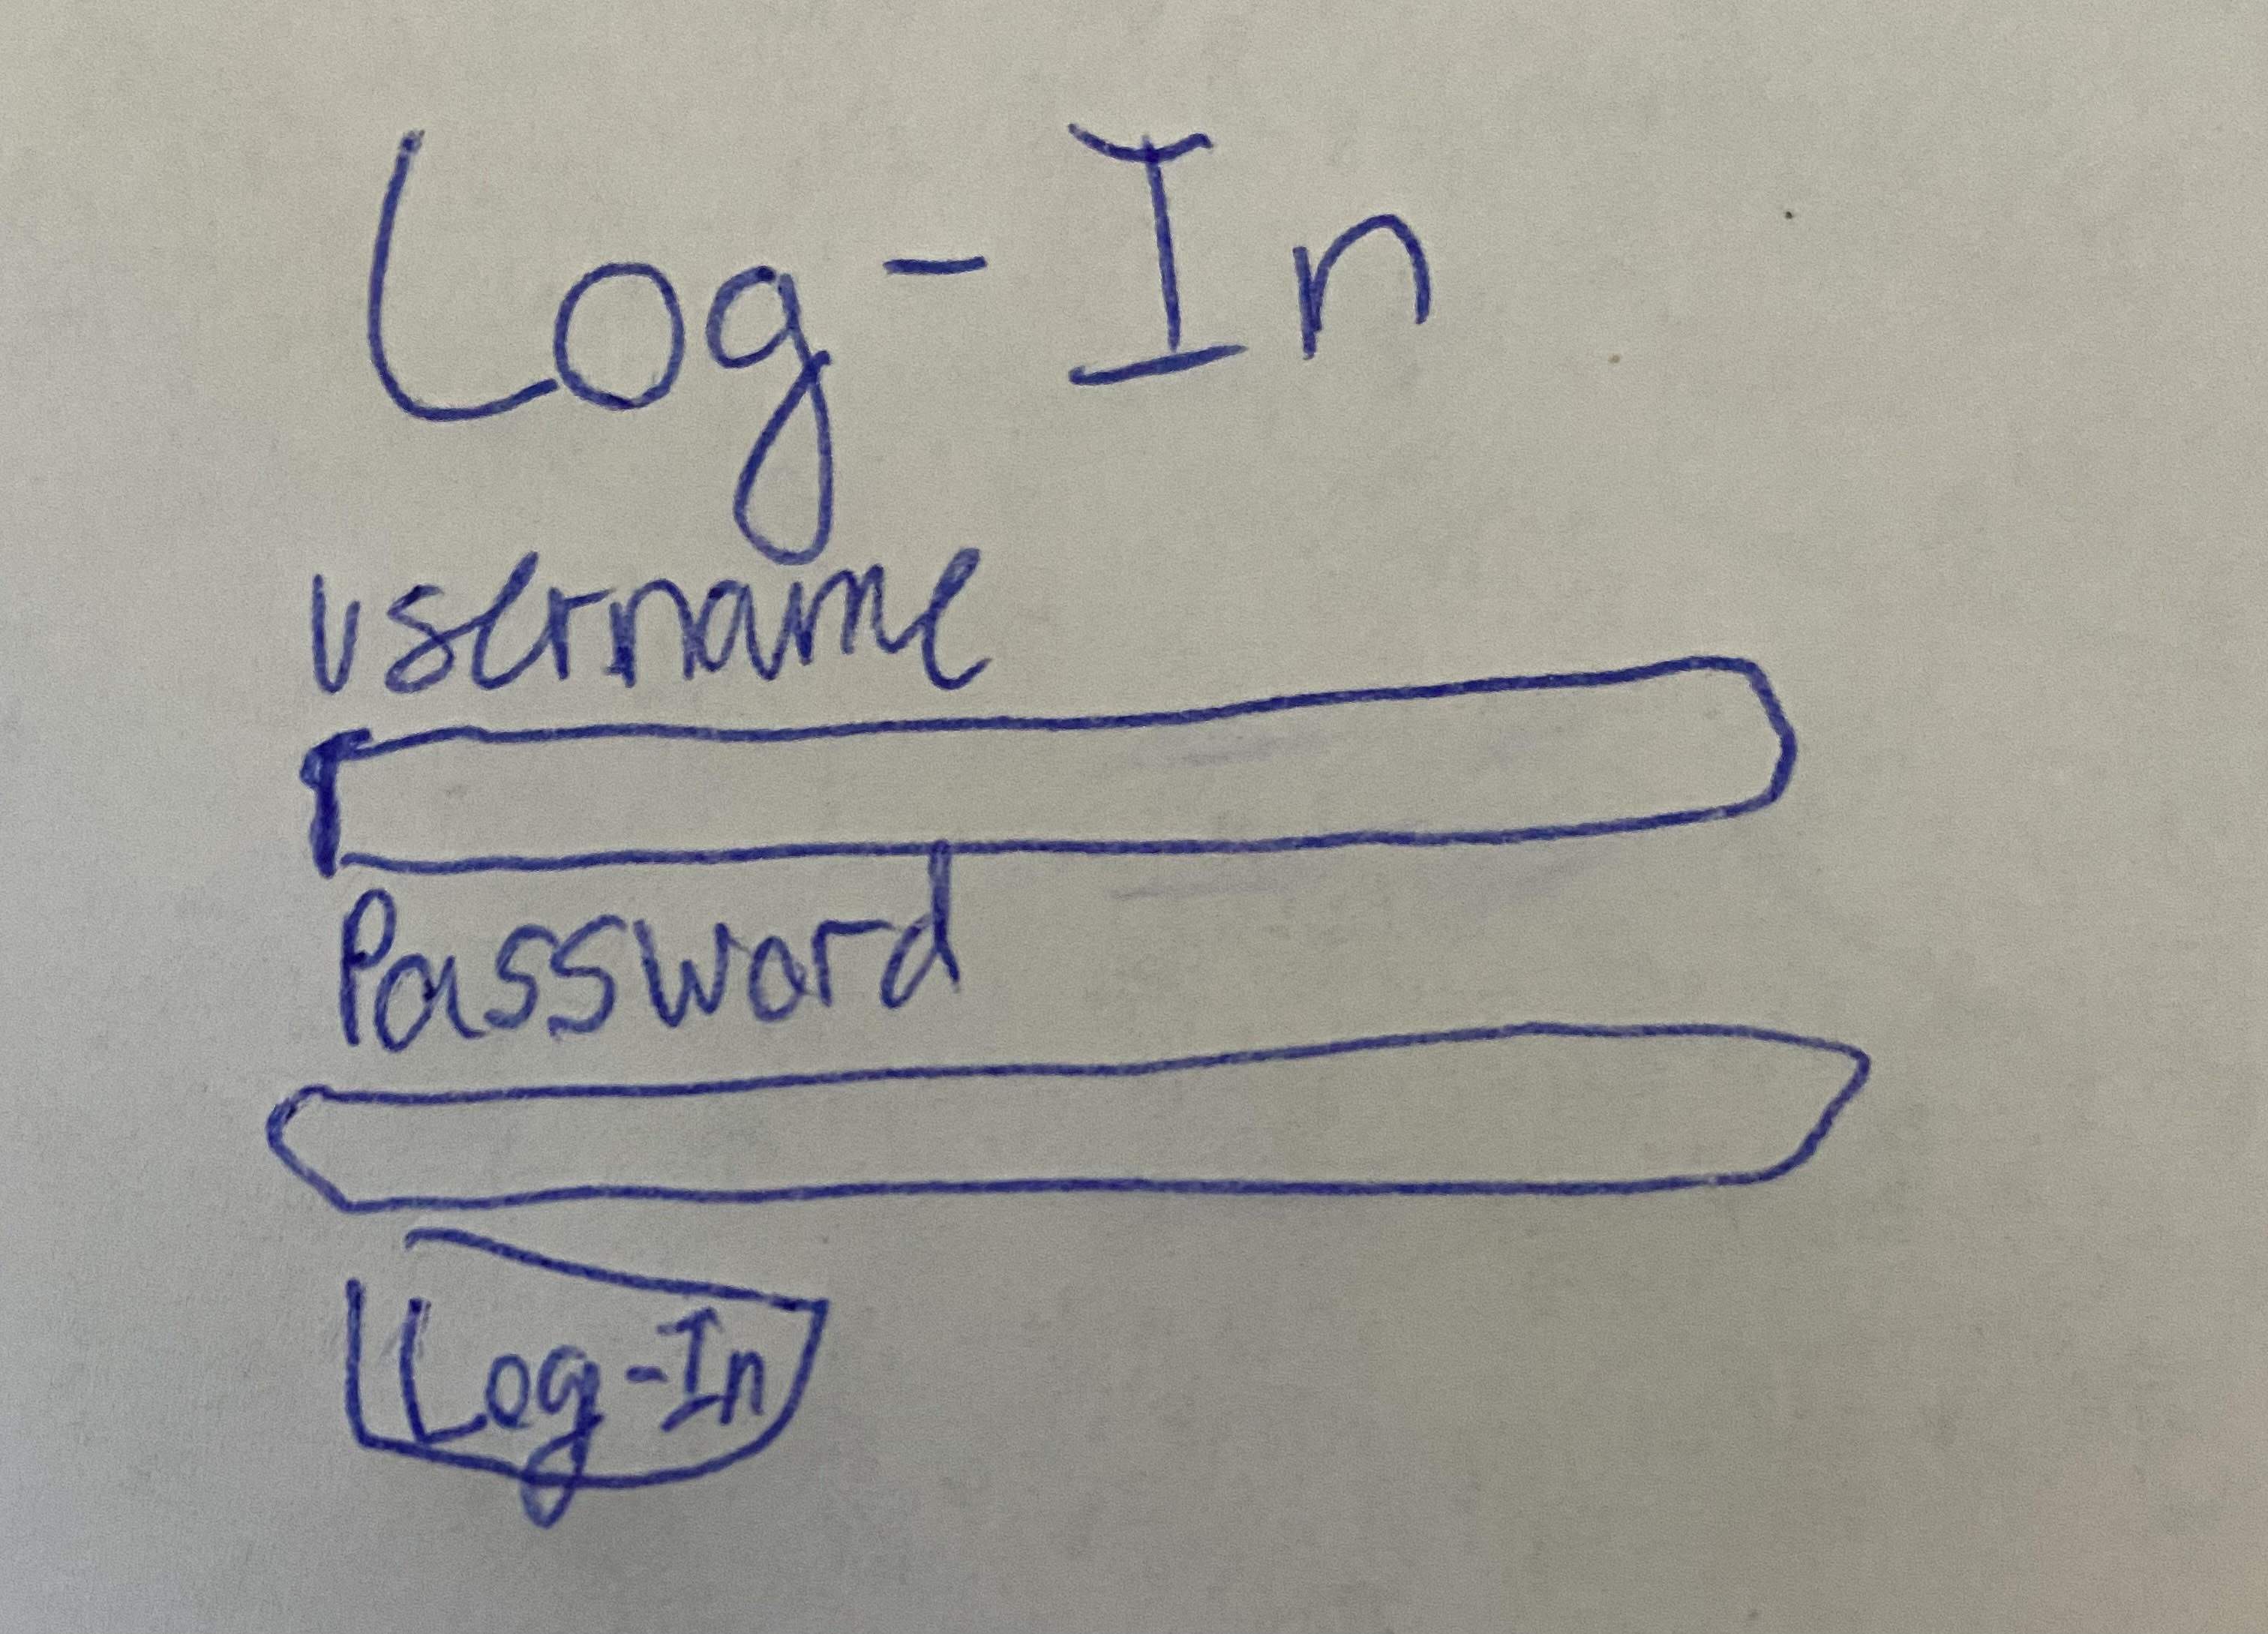 Log-In
username
Password
Log-In